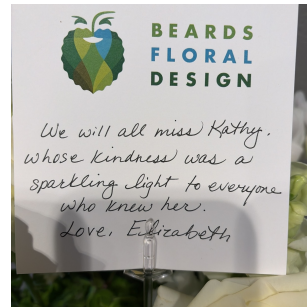 BEARDS
FLORAL
DESIGN
We will all miss Kathy,
whose kindness was a
sparkling light to everyone
who knew her.
Love, Elizabeth